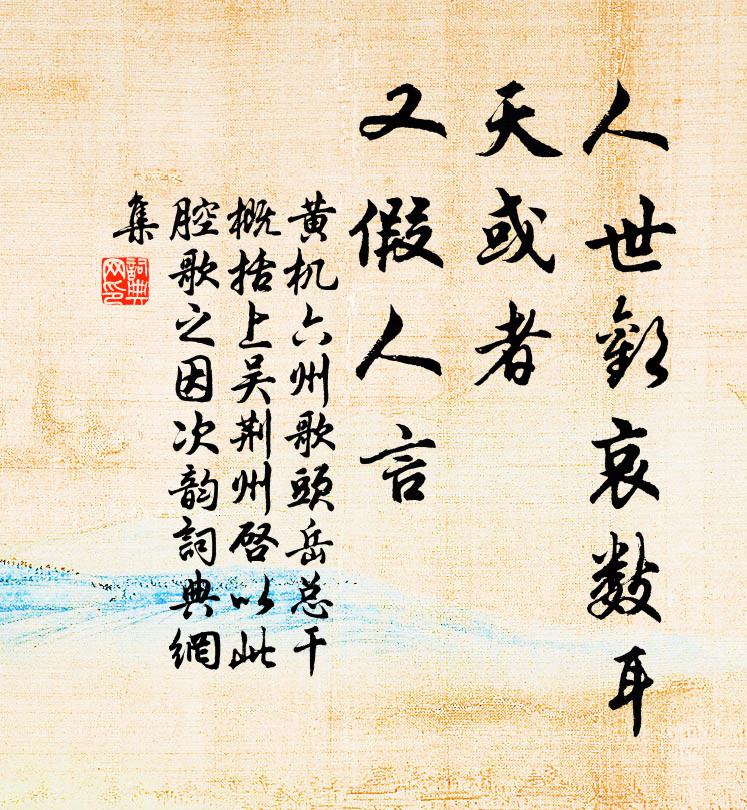 人世歡哀數耳
天或者
又假人言
黄机六州歌頭岳总干
概括上吴荆州啓以此
腔歌之因次韵詞典網
集
詞典
网印